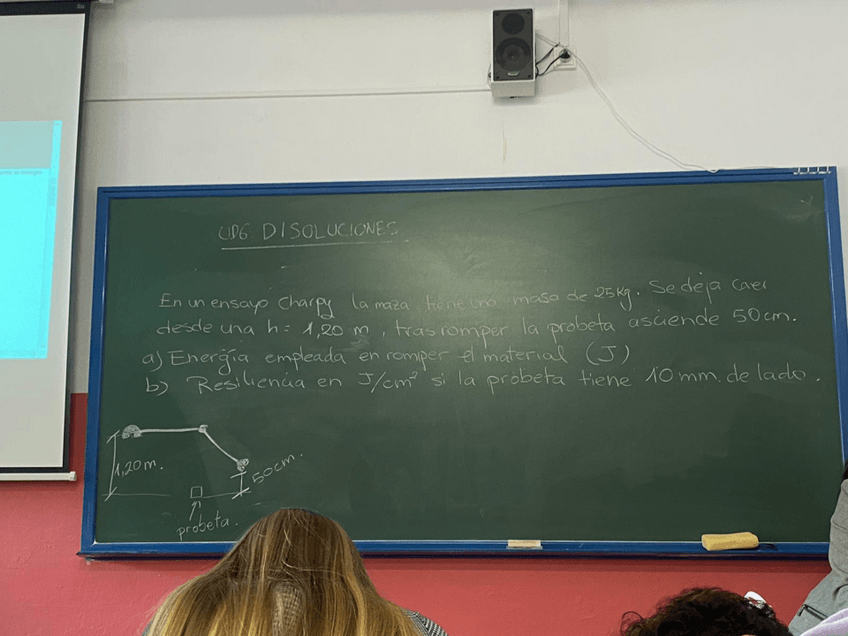 UD6 DISOLUCIONES
En un ensayo Charpy la maza tiene una masa de 25Kg. Se deja caer
desde una h = 1,20 m, tras romper la probeta asciende 50cm.
a) Energía empleada en romper el material (J)
b) Resiliencia en J/cm² si la probeta tiene 10 mm. de lado.
1,20m.
50cm.
probeta.